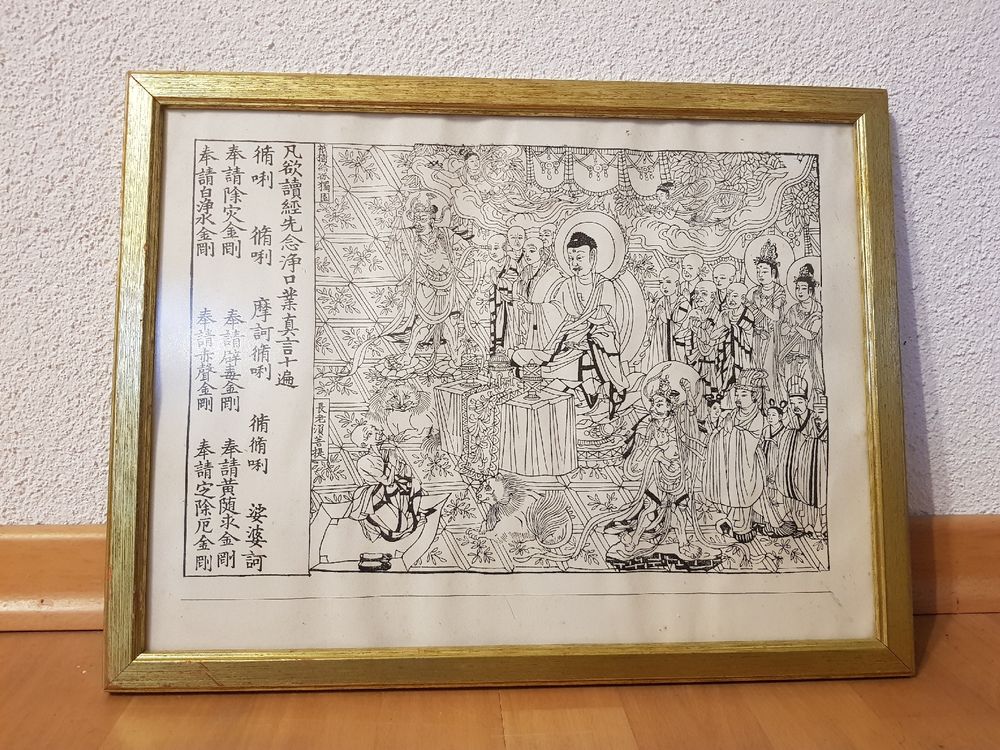 祇樹給孤獨園
長老須菩提
凡欲讀經先念浄口業真言十遍
脩唎 脩唎 摩訶脩唎 脩脩唎 娑婆訶
奉請除灾金剛 奉請辟毒金剛 奉請黃随求金剛
奉請白浄水金剛 奉請赤聲金剛 奉請定除厄金剛